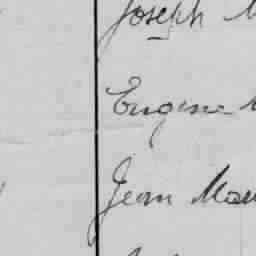 Joseph
Eugene
Jean Mau